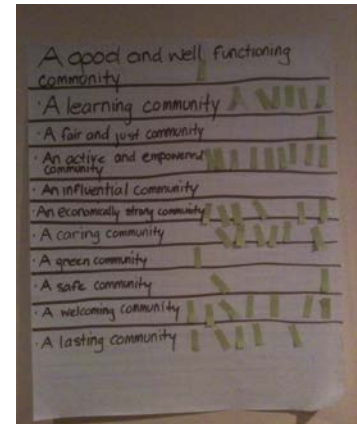 A good and well functioning
community
· A learning community
· A fair and just community
· An active and empowered
community
· An influential community
· An economically strong community
· A caring community
· A green community
· A safe community
· A welcoming community
· A lasting community